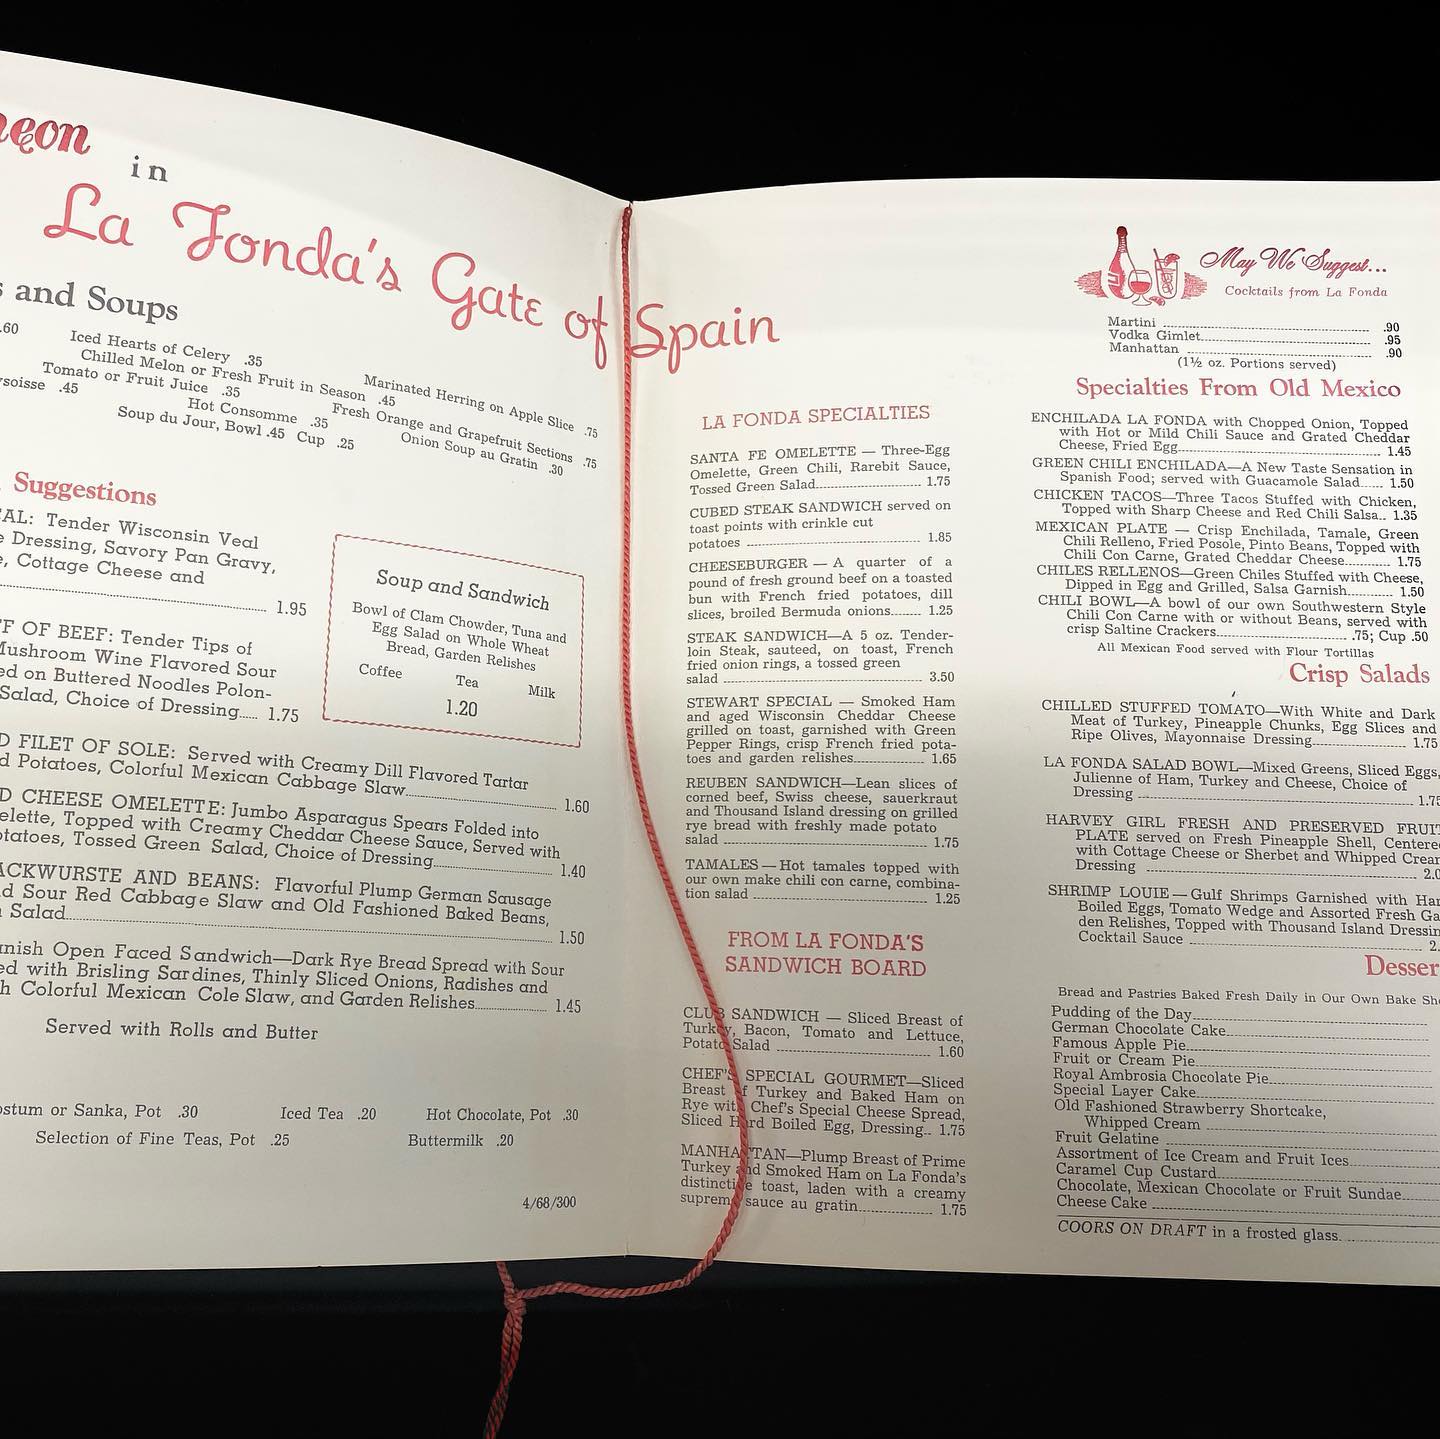 in
La Fonda's Gate of Spain
and Soups
.60 Iced Hearts of Celery .35 Marinated Herring on Apple Slice .75
Chilled Melon or Fresh Fruit in Season .45
Tomato or Fruit Juice .35 Fresh Orange and Grapefruit Sections .75
.45 Hot Consomme .35 Onion Soup au Gratin .30
Soup du Jour, Bowl .45 Cup .25
Suggestions
Tender Wisconsin Veal
Dressing, Savory Pan Gravy,
Cottage Cheese and
1.95
OF BEEF: Tender Tips of
Mushroom Wine Flavored Sour
on Buttered Noodles Polon-
Salad, Choice of Dressing...... 1.75
Soup and Sandwich
Bowl of Clam Chowder, Tuna and
Egg Salad on Whole Wheat
Bread, Garden Relishes
Coffee Tea Milk
1.20
FILET OF SOLE: Served with Creamy Dill Flavored Tartar
Potatoes, Colorful Mexican Cabbage Slaw 1.60
CHEESE OMELETTE: Jumbo Asparagus Spears Folded into
Topped with Creamy Cheddar Cheese Sauce, Served with
Tossed Green Salad, Choice of Dressing 1.40
AND BEANS: Flavorful Plump German Sausage
Sour Red Cabbage Slaw and Old Fashioned Baked Beans,
Salad 1.50
Open Faced Sandwich—Dark Rye Bread Spread with Sour
with Brisling Sardines, Thinly Sliced Onions, Radishes and
Colorful Mexican Cole Slaw, and Garden Relishes 1.45
Served with Rolls and Butter
or Sanka, Pot .30 Iced Tea .20 Hot Chocolate, Pot .30
Selection of Fine Teas, Pot .25 Buttermilk .20
4/68/300
LA FONDA SPECIALTIES
SANTA FE OMELETTE — Three-Egg
Omelette, Green Chili, Rarebit Sauce,
Tossed Green Salad 1.75
CUBED STEAK SANDWICH served on
toast points with crinkle cut
potatoes 1.85
CHEESEBURGER — A quarter of a
pound of fresh ground beef on a toasted
bun with French fried potatoes, dill
slices, broiled Bermuda onions 1.25
STEAK SANDWICH—A 5 oz. Tender-
loin Steak, sauteed, on toast, French
fried onion rings, a tossed green
salad 3.50
STEWART SPECIAL — Smoked Ham
and aged Wisconsin Cheddar Cheese
grilled on toast, garnished with Green
Pepper Rings, crisp French fried pota-
toes and garden relishes 1.65
REUBEN SANDWICH—Lean slices of
corned beef, Swiss cheese, sauerkraut
and Thousand Island dressing on grilled
rye bread with freshly made potato
salad 1.75
TAMALES — Hot tamales topped with
our own make chili con carne, combina-
tion salad 1.25
FROM LA FONDA'S
SANDWICH BOARD
CLUB SANDWICH — Sliced Breast of
Turkey, Bacon, Tomato and Lettuce,
Potato Salad 1.60
CHEF'S SPECIAL GOURMET—Sliced
Breast of Turkey and Baked Ham on
Rye with Chef's Special Cheese Spread,
Sliced Hard Boiled Egg, Dressing.. 1.75
MANHATTAN—Plump Breast of Prime
Turkey and Smoked Ham on La Fonda's
distinctive toast, laden with a creamy
supreme sauce au gratin 1.75
May We Suggest...
Cocktails from La Fonda
Martini .90
Vodka Gimlet .95
Manhattan .90
(1½ oz. Portions served)
Specialties From Old Mexico
ENCHILADA LA FONDA with Chopped Onion, Topped
with Hot or Mild Chili Sauce and Grated Cheddar
Cheese, Fried Egg 1.45
GREEN CHILI ENCHILADA—A New Taste Sensation in
Spanish Food; served with Guacamole Salad 1.50
CHICKEN TACOS—Three Tacos Stuffed with Chicken,
Topped with Sharp Cheese and Red Chili Salsa.. 1.35
MEXICAN PLATE — Crisp Enchilada, Tamale, Green
Chili Relleno, Fried Posole, Pinto Beans, Topped with
Chili Con Carne, Grated Cheddar Cheese 1.75
CHILES RELLENOS—Green Chiles Stuffed with Cheese,
Dipped in Egg and Grilled, Salsa Garnish 1.50
CHILI BOWL—A bowl of our own Southwestern Style
Chili Con Carne with or without Beans, served with
crisp Saltine Crackers .75; Cup .50
All Mexican Food served with Flour Tortillas
Crisp Salads
CHILLED STUFFED TOMATO—With White and Dark
Meat of Turkey, Pineapple Chunks, Egg Slices and
Ripe Olives, Mayonnaise Dressing 1.75
LA FONDA SALAD BOWL—Mixed Greens, Sliced Eggs,
Julienne of Ham, Turkey and Cheese, Choice of
Dressing 1.75
HARVEY GIRL FRESH AND PRESERVED FRUIT
PLATE served on Fresh Pineapple Shell, Centered
with Cottage Cheese or Sherbet and Whipped Cream
Dressing 2.0
SHRIMP LOUIE — Gulf Shrimps Garnished with Hard
Boiled Eggs, Tomato Wedge and Assorted Fresh Gar-
den Relishes, Topped with Thousand Island Dressing
Cocktail Sauce 2.
Desser
Bread and Pastries Baked Fresh Daily in Our Own Bake Sho
Pudding of the Day
German Chocolate Cake
Famous Apple Pie
Fruit or Cream Pie
Royal Ambrosia Chocolate Pie
Special Layer Cake
Old Fashioned Strawberry Shortcake,
Whipped Cream
Fruit Gelatine
Assortment of Ice Cream and Fruit Ices
Caramel Cup Custard
Chocolate, Mexican Chocolate or Fruit Sundae
Cheese Cake
COORS ON DRAFT in a frosted glass